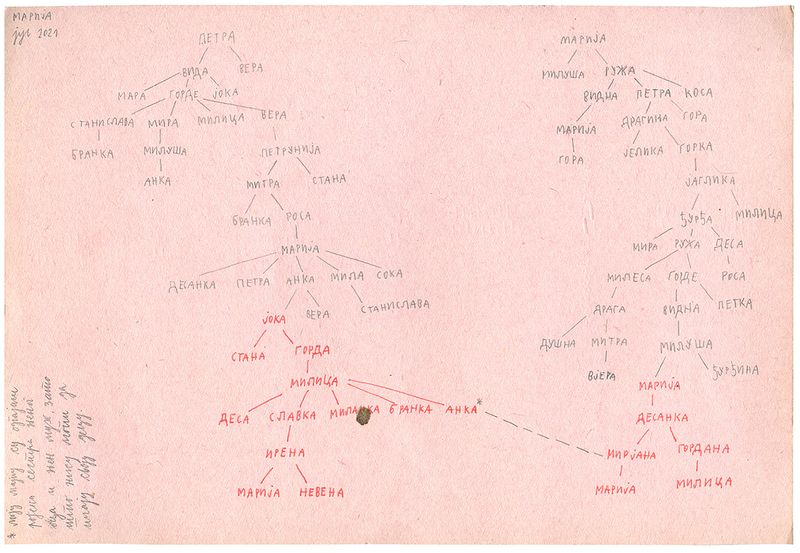 МАРИЈА
јул 2021
ПЕТРА
ВИДА ВЕРА
МАРА ГОРДЕ ЈОКА
СТАНИСЛАВА МИРА МИЛИЦА ВЕРА
БРАНКА МИЛУША ПЕТРУНИЈА
АНКА МИТРА СТАНА
БРАНКА РОСА
МАРИЈА
ДЕСАНКА ПЕТРА АНКА МИЛА СОКА
ВЕРА СТАНИСЛАВА
ЈОКА
СТАНА ГОРДА
МИЛИЦА
ДЕСА СЛАВКА МИЛАНКА БРАНКА АНКА*
ИРЕНА
МАРИЈА НЕВЕНА
МАРИЈА
МИЛУША РУЖА
ВИДНА ПЕТРА КОСА
МАРИЈА ДРАГИЊА ГОРА
ГОРА ЈЕЛИКА ГОРКА
ЈАГЛИКА
ЂУРЂА МИЛИЦА
МИРА РУЖА ДЕСА
МИЛЕСА ГОРДЕ РОСА
ДРАГА ВИДНА ПЕТКА
ДУШНА МИТРА МИЛУША
ВЈЕРА ЂУРЂИНА
МАРИЈА
ДЕСАНКА
МИРЈАНА ГОРДАНА
МАРИЈА МИЛИЦА
* моју мајку су
рођена сестра
и њен муж, зато
што нису могли да
имају своју децу